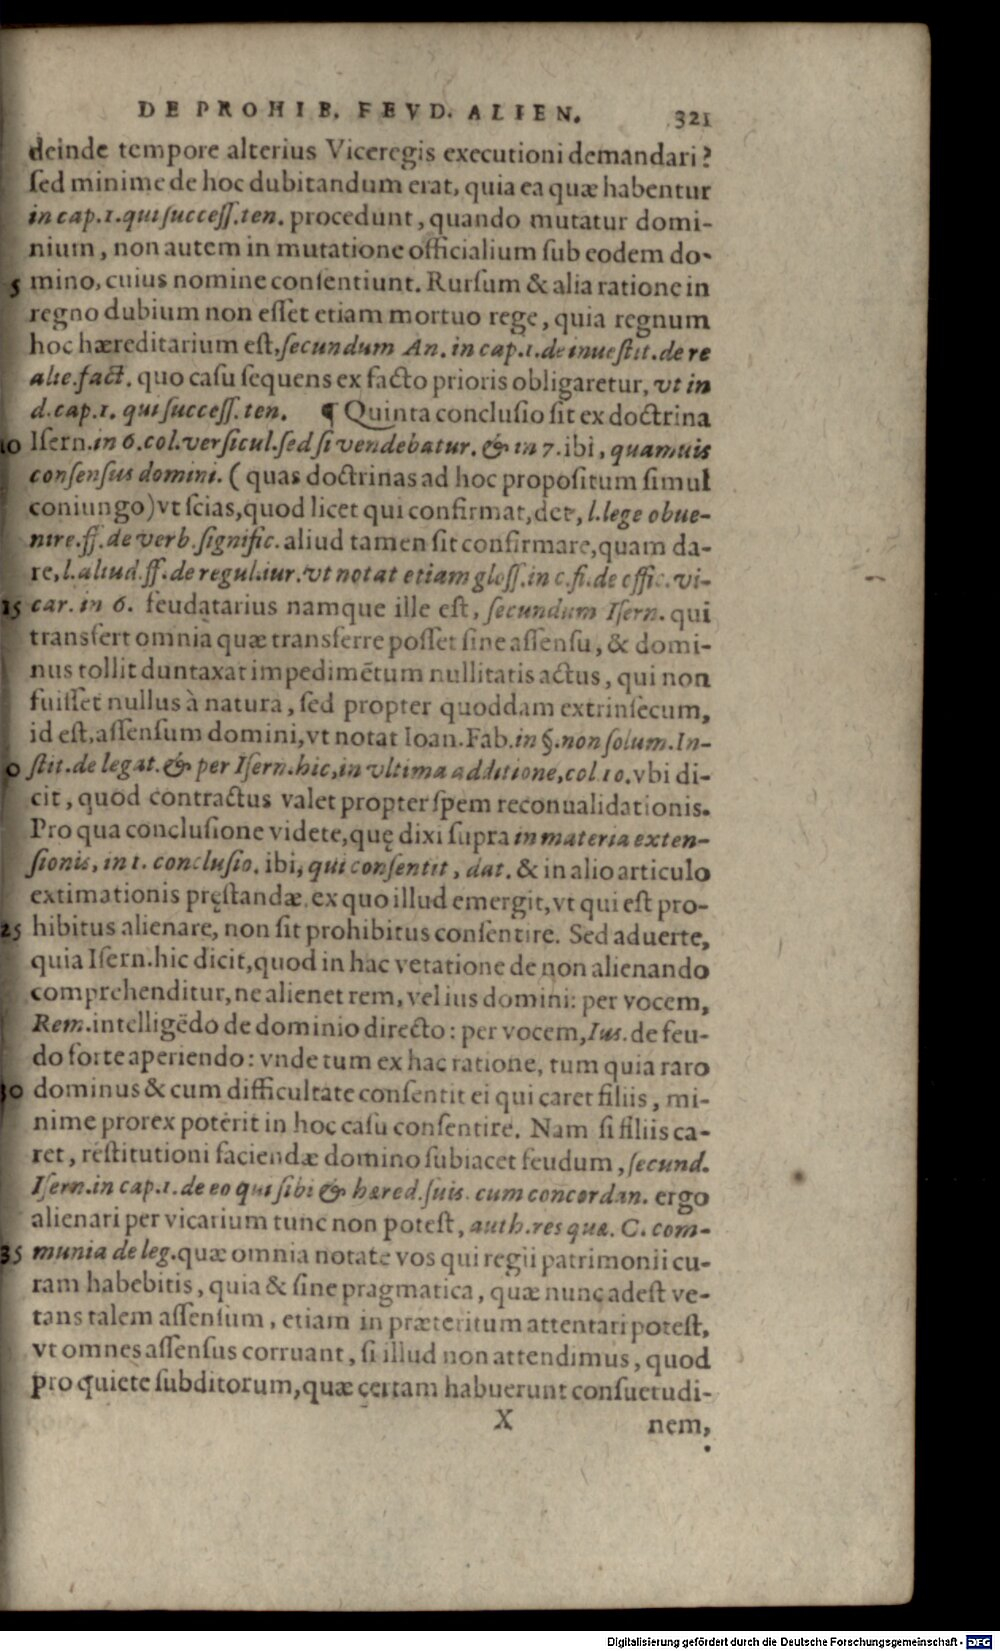 DE PROHIB. FEVD. ALIEN. 321
deinde tempore alterius Viceregis executioni demandari?
ſed minime de hoc dubitandum erat, quia ea quæ habentur
in cap.1.qui ſucceſſ.ten. procedunt, quando mutatur domi-
nium, non autem in mutatione officialium ſub eodem do-
5 mino, cuius nomine conſentiunt. Rurſum & alia ratione in
regno dubium non eſſet etiam mortuo rege, quia regnum
hoc hæreditarium eſt, ſecundum An. in cap.1.de inueſtit.de re
alie.fact. quo caſu ſequens ex facto prioris obligaretur, vt in
d.cap.1. qui ſucceſſ.ten. ¶ Quinta concluſio ſit ex doctrina
10 Iſern.in 6.col.verſicul.ſed ſi vendebatur. & in 7. ibi, quamuis
conſenſus domini. ( quas doctrinas ad hoc propoſitum ſimul
coniungo) vt ſcias, quod licet qui confirmat, det, l.lege obue-
nire.ff.de verb.ſignific. aliud tamen ſit confirmare, quam da-
re, l.aliud.ff.de regul.iur.vt notat etiam gloſſ.in c.fi.de offic.vi-
15 car. in 6. feudatarius namque ille eſt, ſecundum Iſern. qui
transfert omnia quæ transferre poſſet ſine aſſenſu, & domi-
nus tollit duntaxat impedimētum nullitatis actus, qui non
fuiſſet nullus à natura, ſed propter quoddam extrinſecum,
id eſt, aſſenſum domini, vt notat Ioan.Fab.in §.non ſolum.In-
0 ſtit.de legat. & per Iſern.hic, in vltima additione, col.10. vbi di-
cit, quòd contractus valet propter ſpem reconualidationis.
Pro qua concluſione videte, quę dixi ſupra in materia exten-
ſionis, in 1. concluſio. ibi, qui conſentit, dat. & in alio articulo
extimationis pręſtandæ. ex quo illud emergit, vt qui eſt pro-
25 hibitus alienare, non ſit prohibitus conſentire. Sed aduerte,
quia Iſern.hic dicit, quod in hac vetatione de non alienando
comprehenditur, ne alienet rem, vel ius domini: per vocem,
Rem.intelligēdo de dominio directo: per vocem, Ius. de feu-
do forte aperiendo: vnde tum ex hac ratione, tum quia raro
30 dominus & cum difficultate conſentit ei qui caret filiis, mi-
nime prorex poterit in hoc caſu conſentire. Nam ſi filiis ca-
ret, reſtitutioni faciendæ domino ſubiacet feudum, ſecund.
Iſern.in cap.1.de eo qui ſibi & hæred.ſuis. cum concordan. ergo
alienari per vicarium tunc non poteſt, auth.res quæ. C. com-
35 munia de leg. quæ omnia notate vos qui regii patrimonii cu-
ram habebitis, quia & ſine pragmatica, quæ nunc adeſt ve-
tans talem aſſenſum, etiam in præteritum attentari poteſt,
vt omnes aſſenſus corruant, ſi illud non attendimus, quod
pro quiete ſubditorum, quæ certam habuerunt conſuetudi-
X nem,
Digitalisierung gefördert durch die Deutsche Forschungsgemeinschaft - DFG